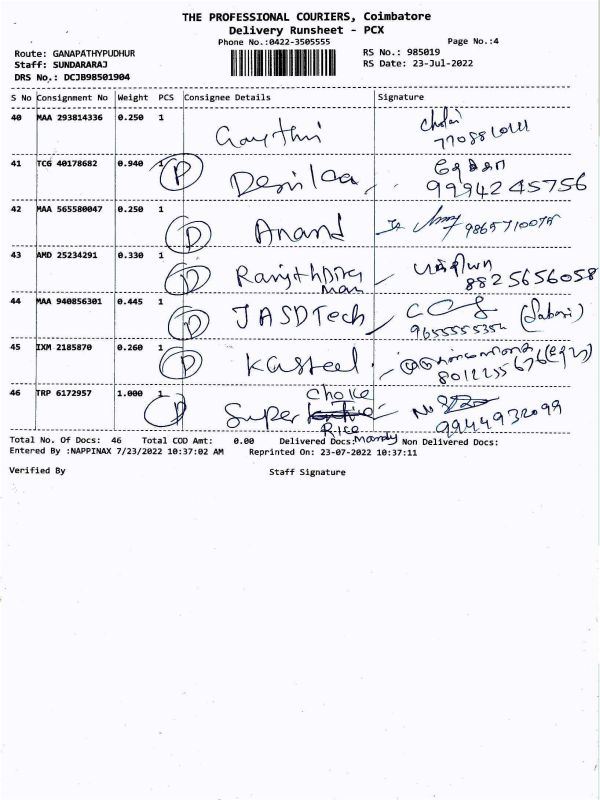 THE PROFESSIONAL COURIERS, Coimbatore
Delivery Runsheet - PCX
Phone No.:0422-3505555 Page No.:4
Route: GANAPATHYPUDHUR RS No.: 985019
Staff: SUNDARARAJ RS Date: 23-Jul-2022
DRS No.: DCJB98501904
S No Consignment No Weight PCS Consignee Details Signature
40 MAA 293814336 0.250 1 Gayathri
41 TCG 40178682 0.940 1 P 9994245756
42 MAA 565580047 0.250 1 P Anand 9865710075
43 AMD 25234291 0.330 1 P 8825656058
44 MAA 940856301 0.445 1 P JASDTech 9655555354 (Sabari)
45 IXM 2185870 0.260 1 P Kasteel 8012255676
46 TRP 6172957 1.000 1 P Super Choice Rice Mandy 9944932099
Total No. Of Docs: 46 Total COD Amt: 0.00 Delivered Docs: Non Delivered Docs:
Entered By :NAPPINAX 7/23/2022 10:37:02 AM Reprinted On: 23-07-2022 10:37:11
Verified By Staff Signature